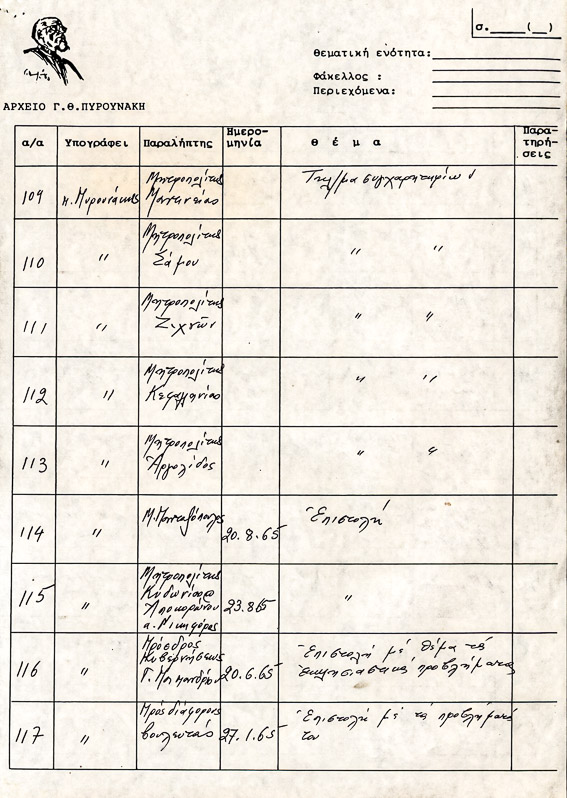 σ.____(__)
Θεματική ενότητα:
Φάκελλος :
Περιεχόμενα:
ΑΡΧΕΙΟ Γ.Θ.ΠΥΡΟΥΝΑΚΗ
α/α Υπογράφει Παραλήπτης Ημερο-μηνία θ έ μ α Παρα-τηρή-σεις
109 π. Πυρουνάκης Μητροπολίτης Μαντινείας Τηλ/μα συγχαρητηρίων
110 " Μητροπολίτης Σάμου " "
111 " Μητροπολίτης Ζιχνῶν " "
112 " Μητροπολίτης Κεφαλληνίας " "
113 " Μητροπολίτης Ἀργολίδος " "
114 " Μ. 20.8.65 Ἐπιστολή
115 " Μητροπολίτης Κυδωνίας Ἀποκορώνου κ. Νικηφόρος 23.8.65 "
116 " Πρόεδρος Κυβερνήσεως Γ. Παπανδρέου 20.6.65 Ἐπιστολή μέ θέμα τά ἐκκλησιαστικά προβλήματα
117 " Πρός διάφορους βουλευτάς 27.1.65 Ἐπιστολή μέ τά προβλήματά του